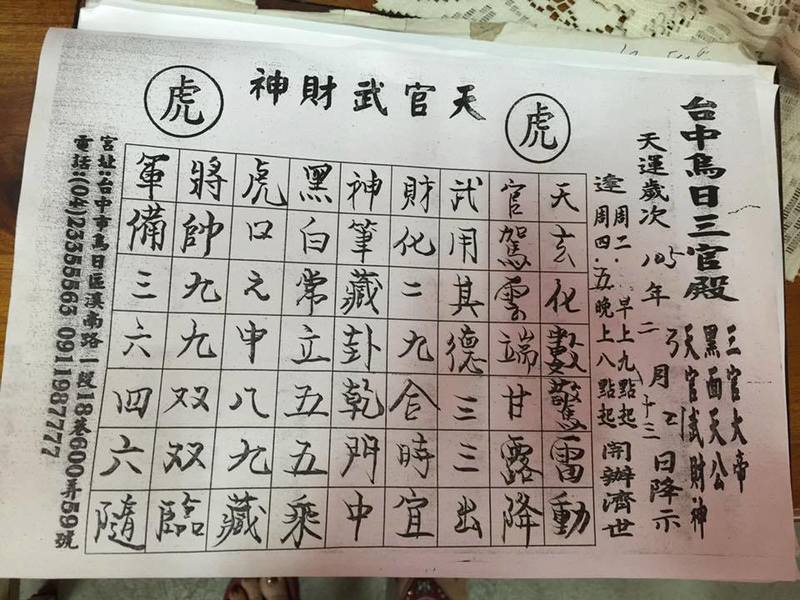 台中烏日三官殿
三官大帝
黑面天公
天官武財神
天運歲次105年二月十三日降示
逢周二.早上九點起
周四.五晚上八點起
開辦濟世
虎
天官武財神
虎
天玄化數驚雷動
官駕雲端甘露降
武用其德三三出
財化二九合時宜
神筆藏卦乾門中
黑白常立五五乘
虎口之申八九藏
將帥九九双双臨
軍備三六四六隨
宮址:台中市烏日區溪南路一段18巷600弄59號
電話:(04)23355565 0911987777